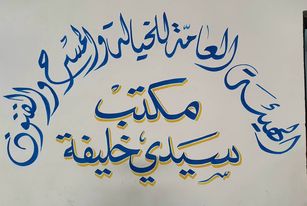 الهيئة العامة للخيالة والمسرح والفنون
مكتب
سيدي خليفة